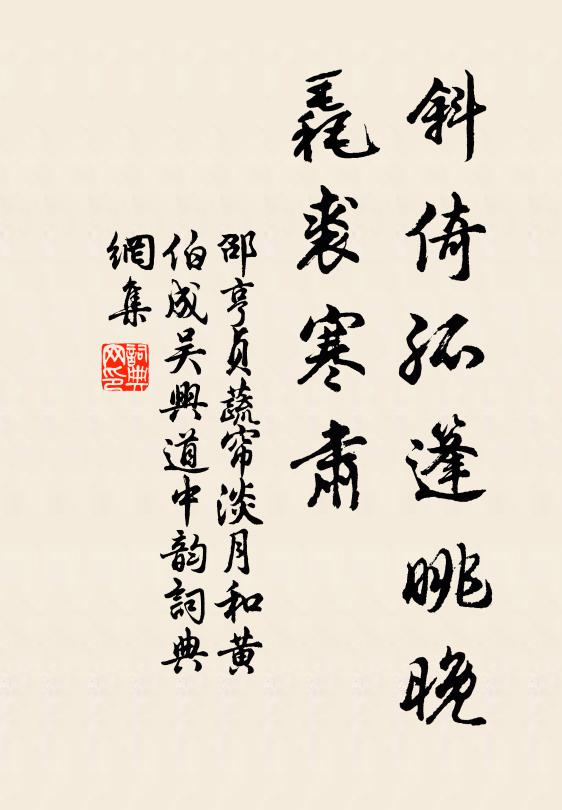 斜倚孤篷眺晚
毳裘寒肅
邵亨貞蔬帘淡月和黄
伯成吴興道中韵詞典
網集
詞典
网印